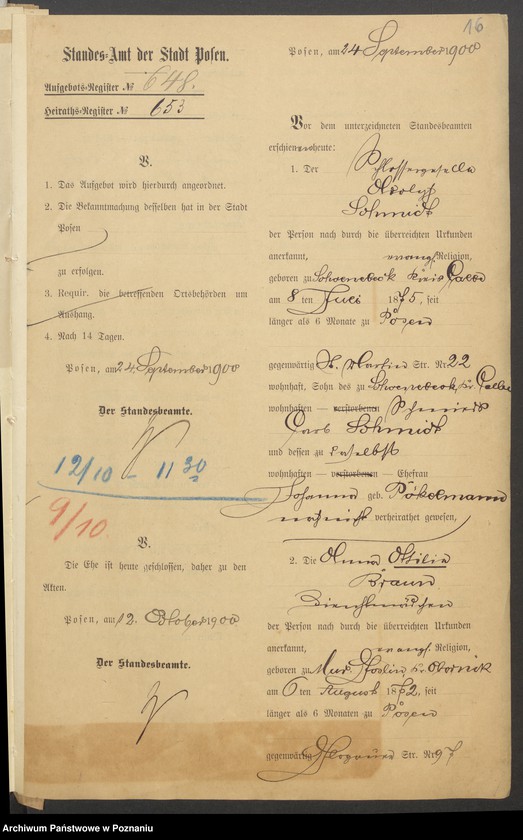 16
Standes-Amt der Stadt Posen.
Aufgebots-Register № 648.
Heiraths-Register № 653
V.
1. Das Aufgebot wird hierdurch angeordnet.
2. Die Bekanntmachung desselben hat in der Stadt
Posen
zu erfolgen.
3. Requir. die betreffenden Ortsbehörden um
Aushang.
4. Nach 14 Tagen.
Posen, am 24 September 1900
Der Standesbeamte.
12/10 - 11 30
9/10
V.
Die Ehe ist heute geschlossen, daher zu den
Akten.
Posen, am 12. Oktober 1900
Der Standesbeamte.
Posen, am 24 September 1900
Vor dem unterzeichneten Standesbeamten
erschienen heute:
1. Der Schlossergeselle
Adolph
Schmidt
der Person nach durch die überreichten Urkunden
anerkannt, evang. Religion,
geboren zu Schoenebeck Kreis Calbe
am 8 ten Juli 1875, seit
länger als 6 Monate zu Posen
gegenwärtig St. Martin Str. Nr 22
wohnhaft, Sohn des zu Schoenebeck, Kr. Calbe
wohnhaften — verstorbenen
Carl Schmidt
und dessen zu daselbst
wohnhaften — verstorbenen — Ehefrau
Johanna geb. Pökelmann
noch nicht verheirathet gewesen,
2. Die Anna Ottilie
Braun
Dienstmädchen
der Person nach durch die überreichten Urkunden
anerkannt, evang. Religion,
geboren zu Mur. Goslin, Kr. Obornik
am 6 ten August 1872, seit
länger als 6 Monaten zu Posen
gegenwärtig Str. Nr 97
Archiwum Państwowe w Poznaniu